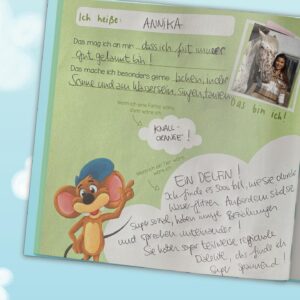 Ich heiße: ANNIKA
Das mag ich an mir: dass ich fast immer
gut gelaunt bin!
Das mache ich besonders gerne: lachen, in der
Sonne und am Wasser sein, singen, tanzen
Das bin ich!
Wenn ich eine Farbe wäre,
wäre ich
KNALL-
ORANGE!
Wenn ich ein Tier wäre,
wäre ich
EIN DELFIN!
Ich finde es so toll, wie sie durchs
Wasser flitzen. Außerdem sind sie
super sozial, haben innige Beziehungen
und sprechen miteinander!
Sie haben super teilweise regionale
Dialekte, das finde ich
super spannend!